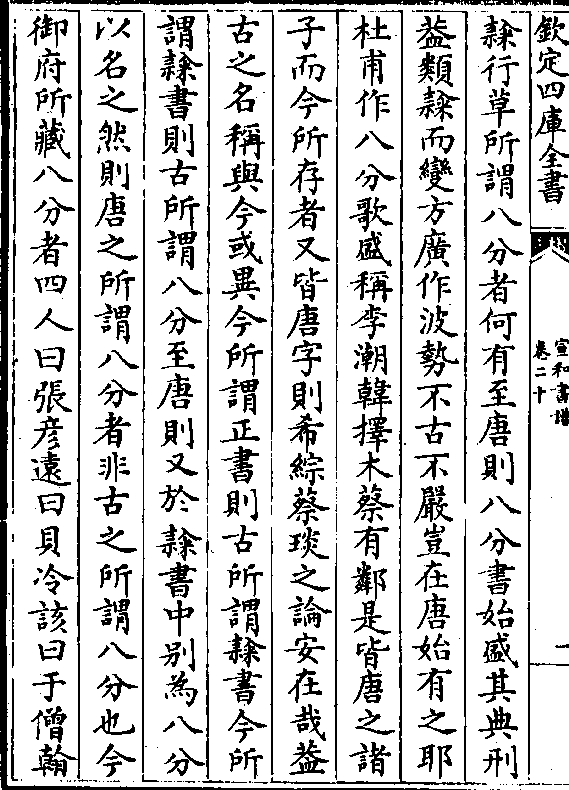 欽定四庫全書
宣和書譜
卷二十
一
隸行草所謂八分者何有至唐則八分書始盛其典刑
葢類隸而變方廣作波勢不古不嚴豈在唐始有之耶
杜甫作八分歌盛稱李潮韓擇木蔡有鄰是皆唐之諸
子而今所存者又皆唐字則希綜蔡琰之論安在哉葢
古之名稱與今或異今所謂正書則古所謂隸書今所
謂隸書則古所謂八分至唐則又於隸書中別為八分
以名之然則唐之所謂八分者非古之所謂八分也今
御府所藏八分者四人曰張彦遠曰貝冷該曰于僧翰